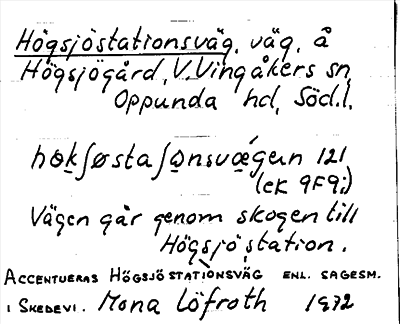 Högsjöstationsväg, väg, å
Högsjögård, V. Vingåkers sn,
Oppunda hd, Södl.
høkʃøstaʃønsvægen 121
(ek 9F9i)
Vägen går genom skogen till
Högsjö station.
ACCENTUERAS HÖGSJÖSTATIONSVÄG ENL. SAGESM.
I SKEDEVI. Mona Löfroth 1972